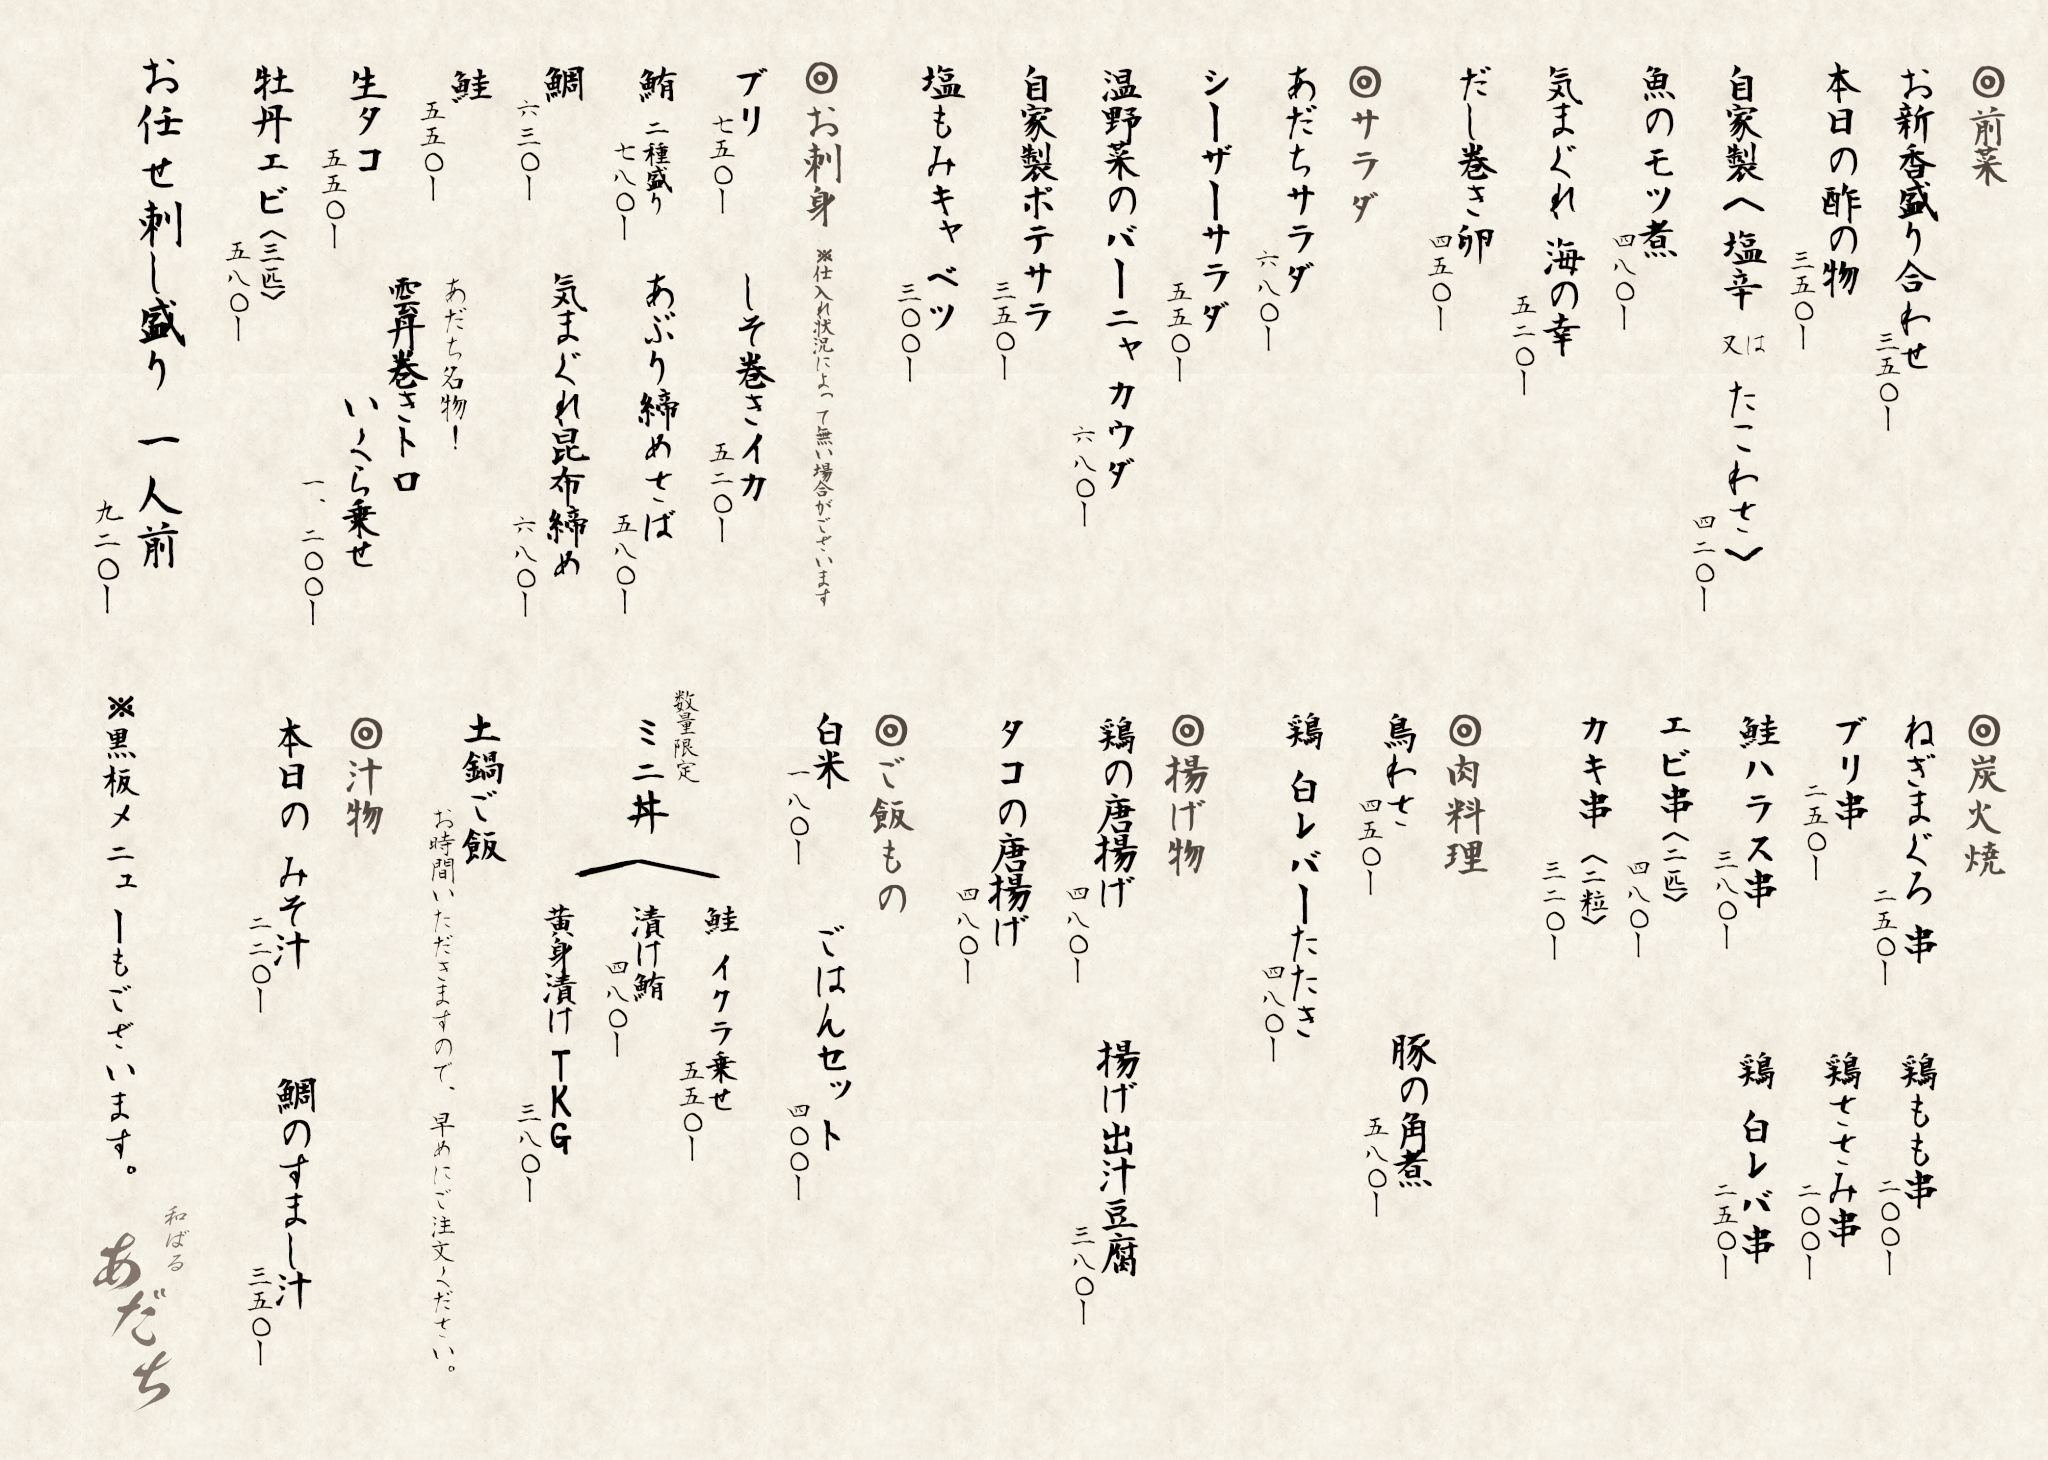 ◎前菜
お新香盛り合わせ
三五〇ー
本日の酢の物
三五〇ー
自家製〈塩辛 又は たこわさ〉
四二〇ー
魚のモツ煮
四八〇ー
気まぐれ 海の幸
五二〇ー
だし巻き卵
四五〇ー
◎サラダ
あだちサラダ
六八〇ー
シーザーサラダ
五五〇ー
温野菜のバーニャカウダ
六八〇ー
自家製ポテサラ
三五〇ー
塩もみキャベツ
三〇〇ー
◎お刺身 ※仕入れ状況によって無い場合がございます
ブリ
七五〇ー
しそ巻きイカ
五二〇ー
鮪 二種盛り
七八〇ー
あぶり締めさば
五八〇ー
鯛
六三〇ー
気まぐれ昆布締め
六八〇ー
鮭
五五〇ー
あだち名物！
雲丹巻きトロ
いくら乗せ
一、二〇〇ー
生タコ
五五〇ー
牡丹エビ〈三匹〉
五八〇ー
お任せ刺し盛り 一人前
九二〇ー
◎炭火焼
ねぎまぐろ串
二五〇ー
鶏もも串
二〇〇ー
ブリ串
二五〇ー
鶏ささみ串
二〇〇ー
鮭ハラス串
三八〇ー
鶏 白レバ串
二五〇ー
エビ串〈二匹〉
四八〇ー
カキ串〈二粒〉
三二〇ー
◎肉料理
鳥わさ
四五〇ー
豚の角煮
五八〇ー
鶏 白レバーたたき
四八〇ー
◎揚げ物
鶏の唐揚げ
四八〇ー
揚げ出汁豆腐
三八〇ー
タコの唐揚げ
四八〇ー
◎ご飯もの
白米
一八〇ー
ごはんセット
四〇〇ー
数量限定
ミニ丼
鮭 イクラ乗せ
五五〇ー
漬け鮪
四八〇ー
黄身漬けTKG
三八〇ー
土鍋ご飯
お時間いただきますので、早めにご注文ください。
◎汁物
本日の みそ汁
二二〇ー
鯛のすまし汁
三五〇ー
※黒板メニューもございます。
和ばる
あだち